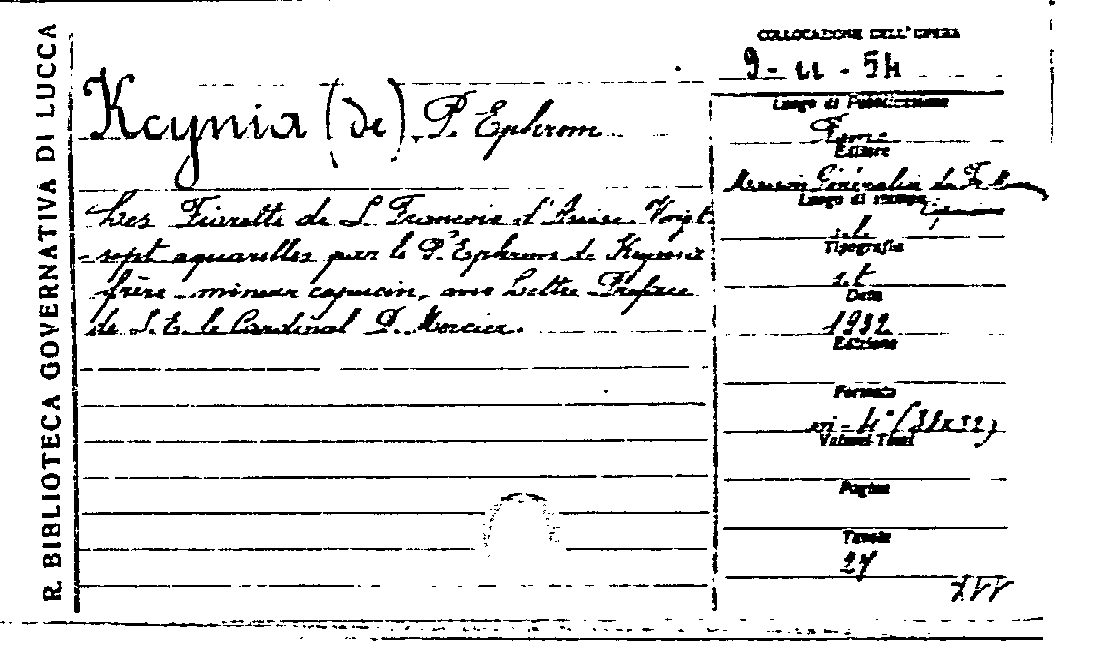 R. BIBLIOTECA GOVERNATIVA DI LUCCA
COLLOCAZIONE DELL'OPERA
9 - 11 - 54
Kcynia (de) P. Ephrem
Luogo di Pubblicazione
Rome
Editore
Maison Généralice de
Luogo di stampa
s.l.
Tipografia
s.t.
Data
1932
Edizione
Formato
in-4° (31x32)
Volumi-Tomi
Pagine
Tavole
27
Les Fioretti de S. François d'Assise. Vingt
sept aquarelles par le P. Ephrem de Kcynia
frère-mineur capucin, avec Lettre Préface
de S. E. le Cardinal D. Mercier.